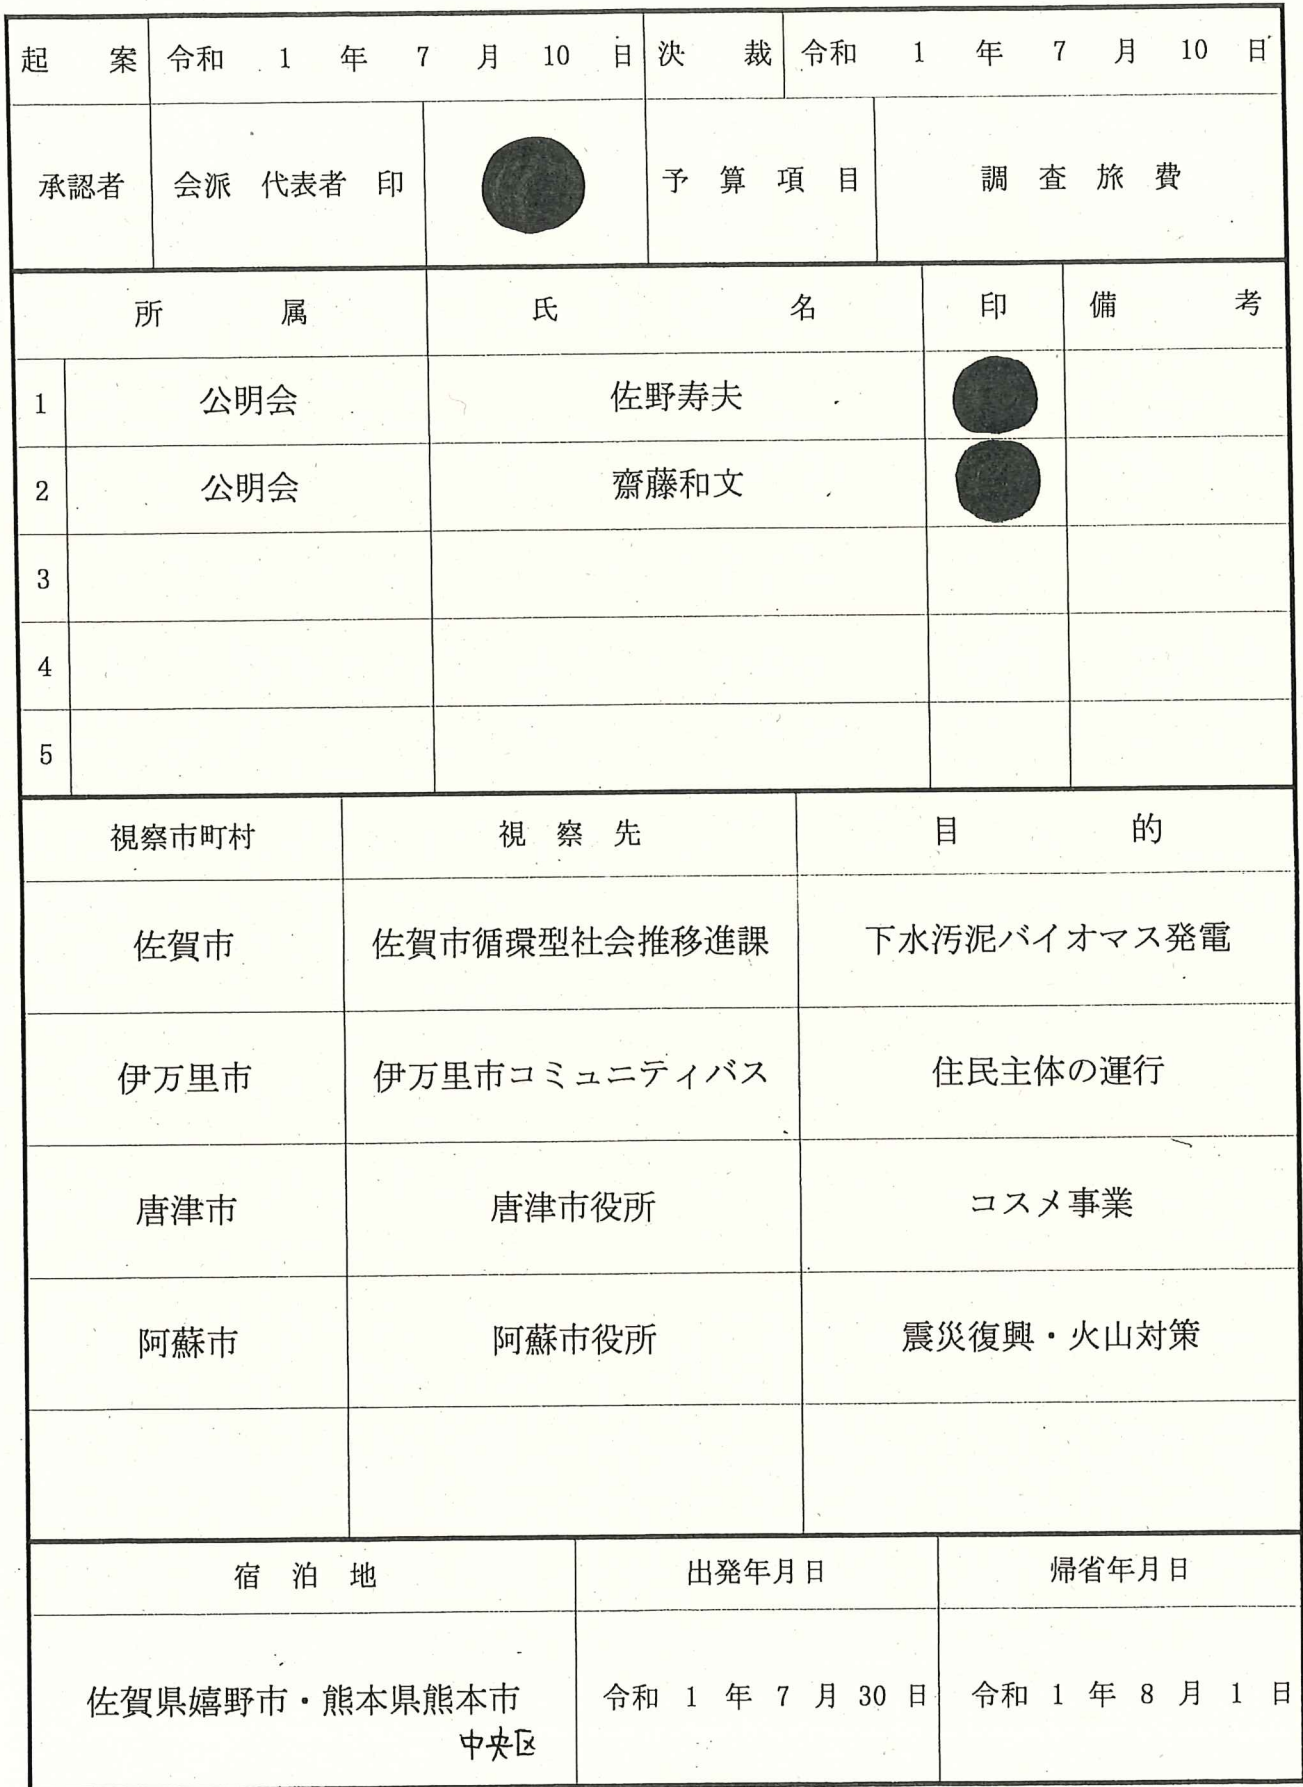 起案 令和 1 年 7 月 10 日 決裁 令和 1 年 7 月 10 日
承認者 会派 代表者 印 予算項目 調査旅費
所属 氏名 印 備考
1 公明会 佐野寿夫
2 公明会 齋藤和文
3
4
5
視察市町村 視察先 目的
佐賀市 佐賀市循環型社会推移進課 下水汚泥バイオマス発電
伊万里市 伊万里市コミュニティバス 住民主体の運行
唐津市 唐津市役所 コスメ事業
阿蘇市 阿蘇市役所 震災復興・火山対策
宿泊地 出発年月日 帰省年月日
佐賀県嬉野市・熊本県熊本市 令和 1 年 7 月 30 日 令和 1 年 8 月 1 日
中央区